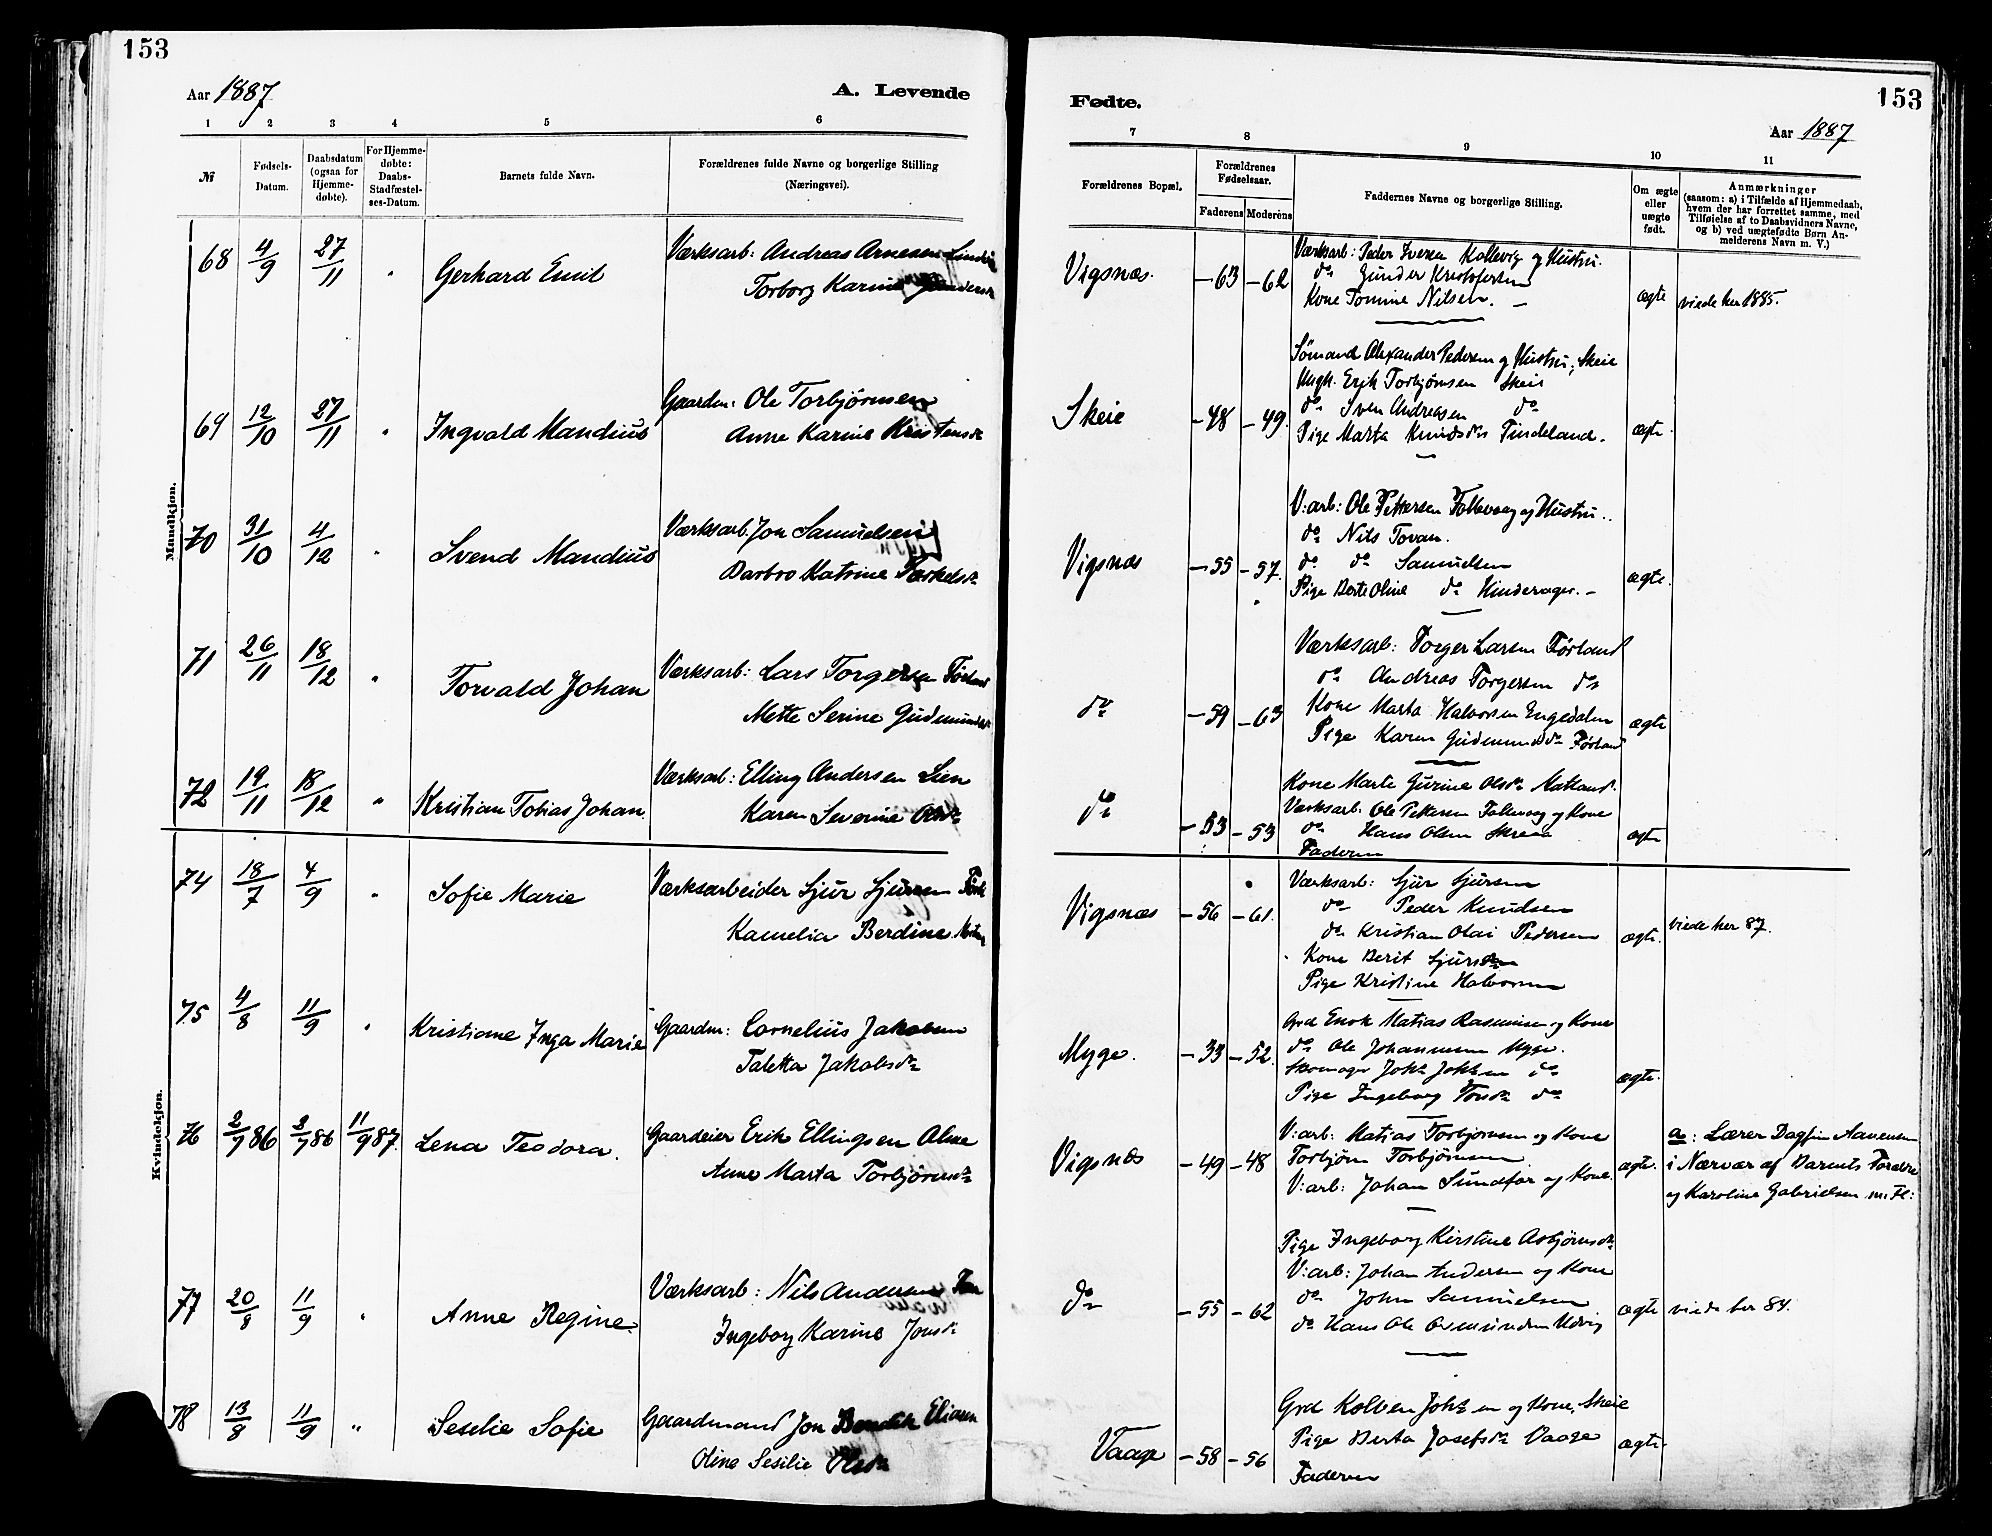 153
Aar 1887
A. Levende
1 2 3 4 5 6
№
Fødsels-
Datum.
Daabsdatum
(ogsaa for
Hjemme-
døbte).
For Hjemme-
døbte:
Daabs-
Stadfæstel-
ses-Datum.
Barnets fulde Navn.
Forældrenes fulde Navne og borgerlige Stilling
(Næringsvei).
Mandkjøn.
68 4/9 27/11 " Gerhard Emil
Værksarb: Andreas Arnesen
Torborg Karine
69 12/10 27/11 " Ingvald Mandius
Gaardm: Ole Torbjørnsen
Anne Karine Kristensdr
70 31/10 4/12 " Svend Mandius
Værksarb. Jon Samuelsen
Barbro Katrine Torkelsdr
71 26/11 18/12 " Torvald Johan
Værksarb: Lars Torgersen Førland
Mette Serine Gudmundsdr
72 19/11 18/12 " Kristian Tobias Johan
Værksarb: Elling Andersen Lien
Karen Severine Olsdr
Kvindekjøn.
74 18/7 4/9 " Sofie Marie
Værksarbeider Sjur Sjursen
Kamelia Berdine
75 4/8 11/9 " Kristiane Inga Marie
Gaardm: Cornelius Jakobsen
Taletta Jakobsdr
76 2/7 86 3/7 86 11/9 87. Lena Teodora.
Gaardeier Erik Ellingsen Alne
Anne Marta Torbjørnsdr
77 20/8 11/9 " Anne Regine.
Værksarb: Nils Andersen
Ingeborg Karine Jonsdr
78 13/8 11/9 " Sesilie Sofie
Gaardmand Jon Bendik Eliasen
Oline Sesilie Olsdr
153
Fødte.
Aar 1887
7 8 9 10 11
Forældrenes Bopæl.
Forældrenes
Fødselsaar.
Faderens Moderens
Faddernes Navne og borgerlige Stilling.
Om ægte
eller
uægte
født.
Anmærkninger
(saasom: a) i Tilfælde af Hjemmedaab,
hvem der har forrettet samme, med
Tilføielse af to Daabsvidners Navne,
og b) ved uægtefødte Børn An-
melderens Navn m. V.)
Vigsnæs. -63 -62
Værksarb: Peder Iversen Kallevig og Hustru.
do Gunder Kristofersen
Kone Tomine Nilsen. -
ægte viede her 1885.
Skeie -48 -49.
Sømand Alexander Pedersen og Hustru, Skeie
Ungk. Erik Torbjørnsen Skeie
do Sven Andreasen do
Pige Marta Knudsdr Tindeland.
ægte.
Vigsnæs -55 -57.
V:arb: Ole Pettersen Falkevaag og Hustru..
do Nils Tovan.
do do Samuelsen
Pige Berte Oline do Hinderager. -
ægte.
do -59 -63
Værksarb: Torger Larsen Førland
do Andreas Torgersen do
Kone Marta Halvorsen Engedalen
Pige Karen Gudmundsdr Førland
ægte
do -53 -53
Kone Marte Gurine Olsdr Matland.
Værksarb. Ole Pettersen Falkevaag og Kone
do Hans Olsen Skree
Faderen
ægte
Vigsnæs -56 -61.
Værksarb: Sjur Sjursen
do Peder Knudsen
do Kristian Olai Pedersen
Kone Berit Sjursdr
Pige Kristine Halvorsen
ægte. viede her 87.
Myge. -33 -52.
Grd Enok Matias Rasmusen og Kone
do Ole Johannesen Myge.
Skomager Johs Johsen do
Pige Ingeborg Tonsdr do
ægte.
Vigsnæs -49 -48
V:arb: Matias Torbjørnsen og Kone
Torbjørn Torbjørnsen
V:arb: Johan Sundfør og Kone.
ægte.
a: Lærer Dagfin Aanensen
i Nærvær af Barnets Forældre
og Karoline Gabrielsen m. Fl:
do -55 -62
Pige Ingeborg Kirstine Asbjørnsdr
V:arb: Johan Andersen og Kone
do John Samuelsen
do Hans Ole Osmundsen Udvig
ægte viede her 84.
Vaage -58 -56
Grd Kolben Johsen og Kone, Skeie
Pige Berta Josefsdr Vaage
Faderen
ægte.